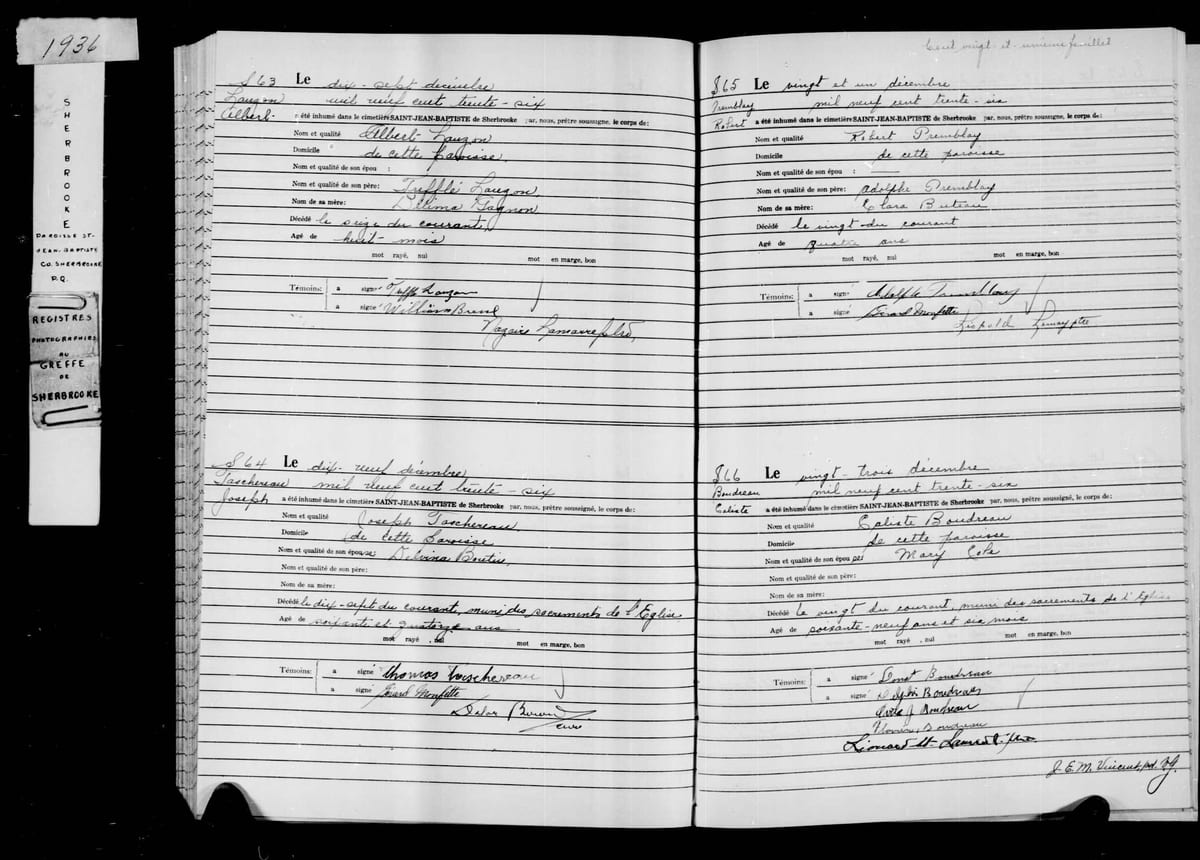 1936
SHERBROOKE
PAROISSE ST-
JEAN-BAPTISTE
CO. SHERBROOKE
P.Q.
REGISTRES
PHOTOGRAPHIES
AU
GREFFE
DE
SHERBROOKE
S63 Le dix-sept décembre
Lauzon mil neuf cent trente-six
Albert. a été inhumé dans le cimetière SAINT-JEAN-BAPTISTE de Sherbrooke par, nous, prêtre soussigné, le corps de:
Nom et qualité Albert Lauzon
Domicile de cette Paroisse.
Nom et qualité de son épou :
Nom et qualité de son père: Trefflé Lauzon
Nom de sa mère: Délima Gagnon
Décédé le seize du courant,
Agé de huit-mois
mot rayé, nul mot en marge, bon
Témoins: a signé Treffle Lauzon
a signé William
Nazaire Lamarre ptre,
S64 Le dix-neuf décembre
Taschereau mil neuf cent trente-six
Joseph a été inhumé dans le cimetière SAINT-JEAN-BAPTISTE de Sherbrooke par, nous, prêtre soussigné, le corps de:
Nom et qualité Joseph Taschereau,
Domicile de cette Paroisse
Nom et qualité de son épouse: Delvina Boutin,
Nom et qualité de son père:
Nom de sa mère:
Décédé le dix-sept du courant, muni des sacrements de l'Eglise
Agé de soixante et quatorze ans
mot rayé, nul mot en marge, bon
Témoins: a signé Thomas Taschereau
a signé Gérard Monfette
curé
Cent vingt-et-unième feuillet
S65 Le vingt et un décembre
Tremblay mil neuf cent trente-six
Robert a été inhumé dans le cimetière SAINT-JEAN-BAPTISTE de Sherbrooke par, nous, prêtre soussigné, le corps de:
Nom et qualité Robert Tremblay
Domicile de cette paroisse
Nom et qualité de son épou :
Nom et qualité de son père: Adolphe Tremblay
Nom de sa mère: Clara Buteau
Décédé le vingt du courant
Agé de quatre ans
mot rayé, nul mot en marge, bon
Témoins: a signé Adolphe Tremblay
a signé Gérard Monfette
Léopold Lemay ptre
S66 Le vingt-trois décembre
Boudreau mil neuf cent trente-six
Caliste a été inhumé dans le cimetière SAINT-JEAN-BAPTISTE de Sherbrooke par, nous, prêtre soussigné, le corps de:
Nom et qualité Caliste Boudreau
Domicile de cette paroisse
Nom et qualité de son épouse Mary Cole
Nom et qualité de son père:
Nom de sa mère:
Décédé le vingt du courant, muni des sacrements de l'Eglise
Agé de soixante-neuf ans et six mois
mot rayé, nul mot en marge, bon
Témoins: a signé Donat Boudreau
a signé Boudreau
J Boudreau
Boudreau
Léonard St-Laurent, ptre
J. E. M. Vincent, pd. V.G.